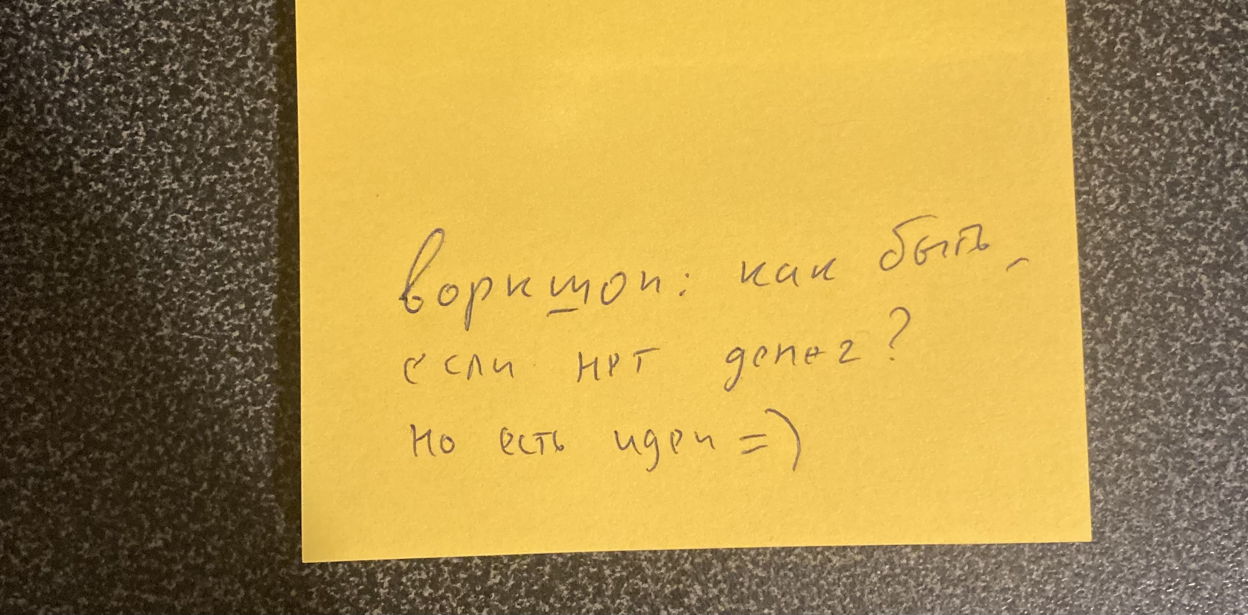 воркшоп: как быть,
если нет денег?
но есть идеи =)